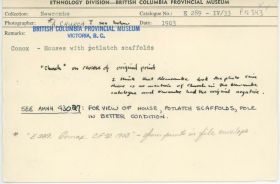 ETHNOLOGY DIVISION—BRITISH COLUMBIA PROVINCIAL MUSEUM
Collection: Newcombe Catalogue No.: E 289 - IV/33 PN 143
Photographer: "A. Church"? see below Date: 1903
BRITISH COLUMBIA PROVINCIAL MUSEUM
VICTORIA, B.C.
Remarks:
Comox - Houses with potlatch scaffolds
"Church" on reverse of original print
I think that Newcombe but the photo since
there is no mention of Church in the Newcombe
catalogue and Newcombe had the original negative.
SEE AMNH 43087: FOR VIEW OF HOUSE, POTLATCH SCAFFOLDS, POLE
IN BETTER CONDITION.
"E 289. Comox. CFN 1903" - from prints in file envelope